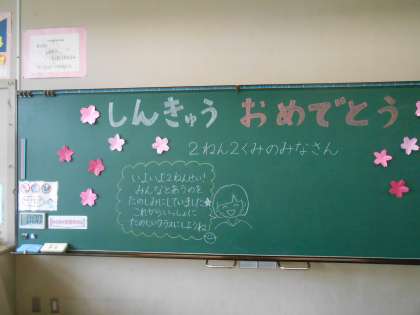 しんきゅう おめでとう
2ねん2くみのみなさん
いよいよ2ねんせい!
みんなとあうのを
たのしみにしていました
これからいっしょに
たのしいクラスにしようね!